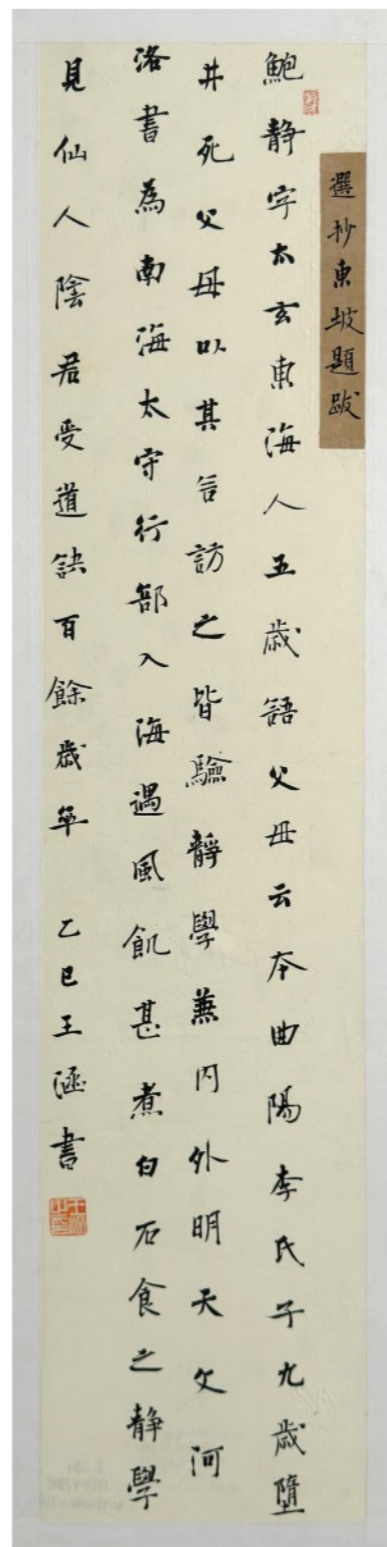 選抄東坡題跋
鮑靜字太玄東海人五歲語父母云本曲陽李氏子九歲墮
井死父母以其言訪之皆驗靜學兼内外明天文河
洛書為南海太守行部入海遇風飢甚煮白石食之靜學
見仙人陰君受道訣百餘歲卒 乙巳王涵書